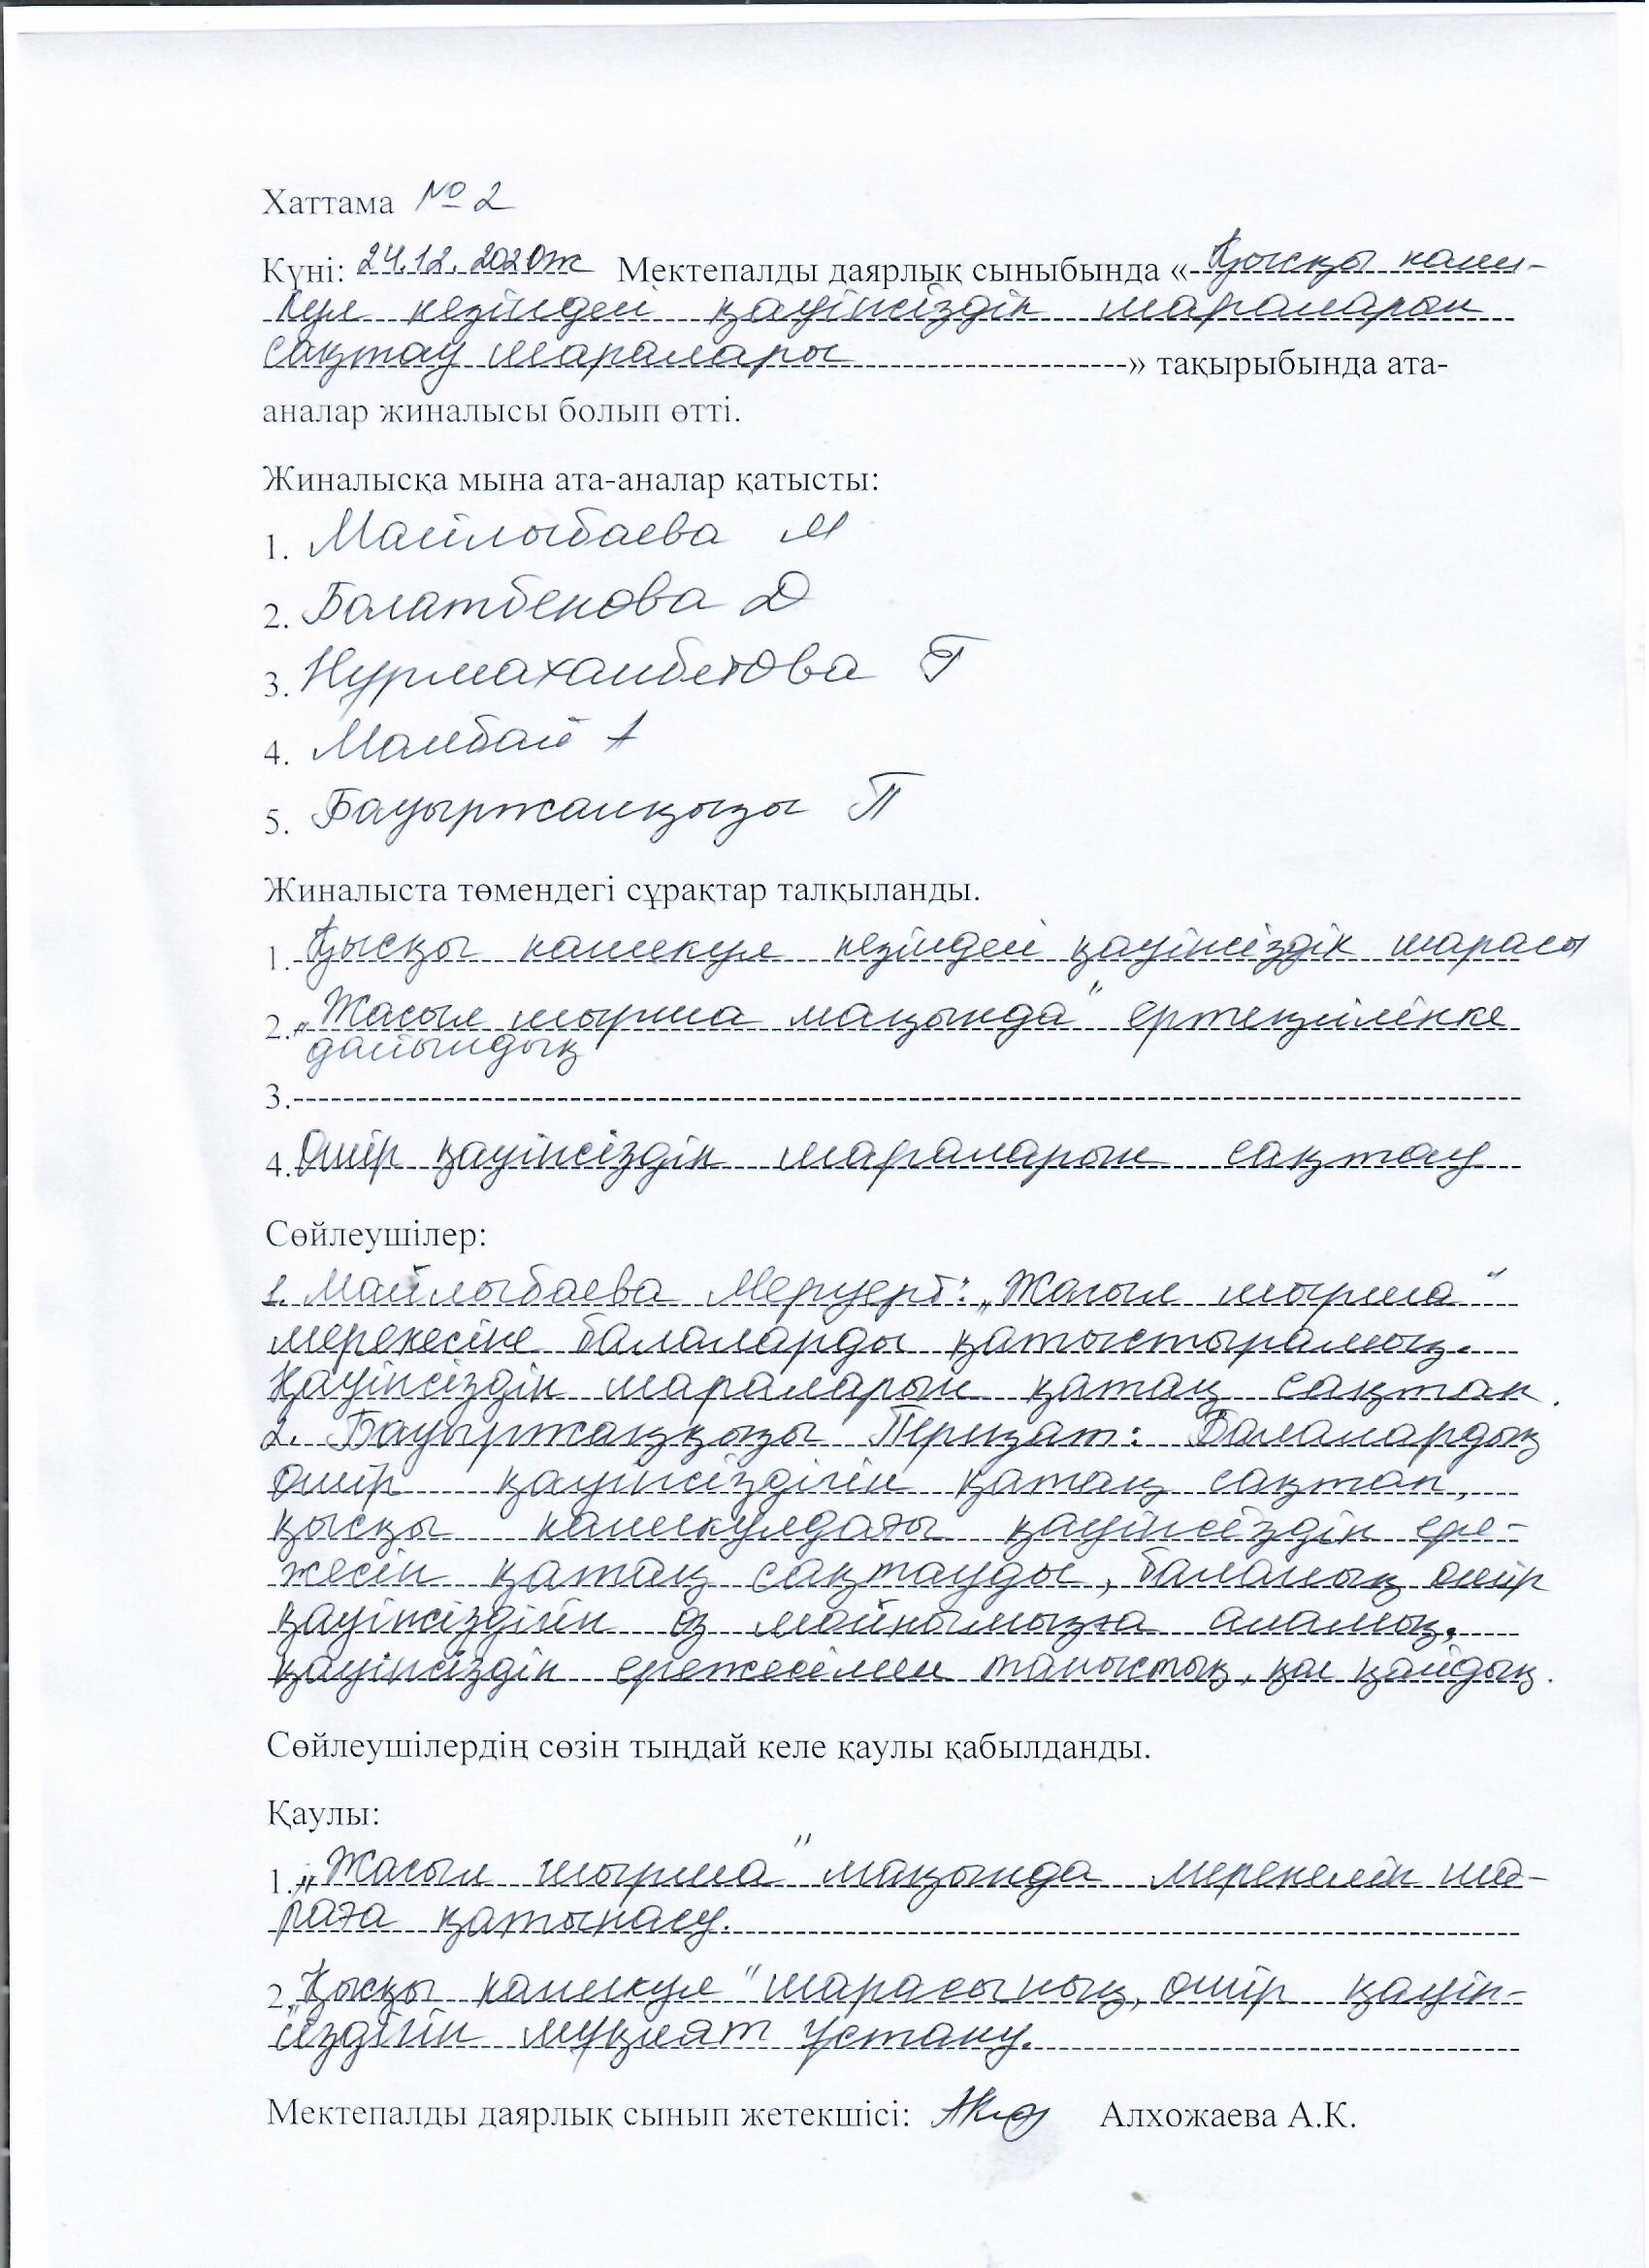 Хаттама №2
Күні: 24.12.2020ж Мектепалды даярлық сыныбында «Қысқы кани-
кул кезіндегі қауіпсіздік шараларын
сақтау шаралары» тақырыбында ата-
аналар жиналысы болып өтті.
Жиналысқа мына ата-аналар қатысты:
1. Майлыбаева М
2. Болатбекова Д
3. Нурмаханбетова Г
4. Мамбай А
5. Бауыржанқызы П
Жиналыста төмендегі сұрақтар талқыланды.
1. Қысқы каникул кезіндегі қауіпсіздік шарасы
2. „Жасыл шырша маңында" ертеңгілікке
дайындық
3.
4. Өмір қауіпсіздік шараларын сақтау
Сөйлеушілер:
1. Майлыбаева Меруерт: „Жасыл шырша"
мерекесіне балаларды қатыстырамыз.
Қауіпсіздік шараларын қатаң сақтап.
2. Бауыржанқызы Перизат: Балалардың
өмір қауіпсіздігін қатаң сақтап,
қысқы каникулдағы қауіпсіздік ере-
жесін қатаң сақтауды, баланың өмір
қауіпсіздігін өз мойнымызға аламыз,
қауіпсіздік ережесімен таныстық, қол қойдық.
Сөйлеушілердің сөзін тыңдай келе қаулы қабылданды.
Қаулы:
1. „Жасыл шырша" маңында мерекелік ша-
раға қатынасу.
2. „Қысқы каникул" шарасының, өмір қауіп-
сіздігін мұқият ұстану.
Мектепалды даярлық сынып жетекшісі: Алхожаева А.К.